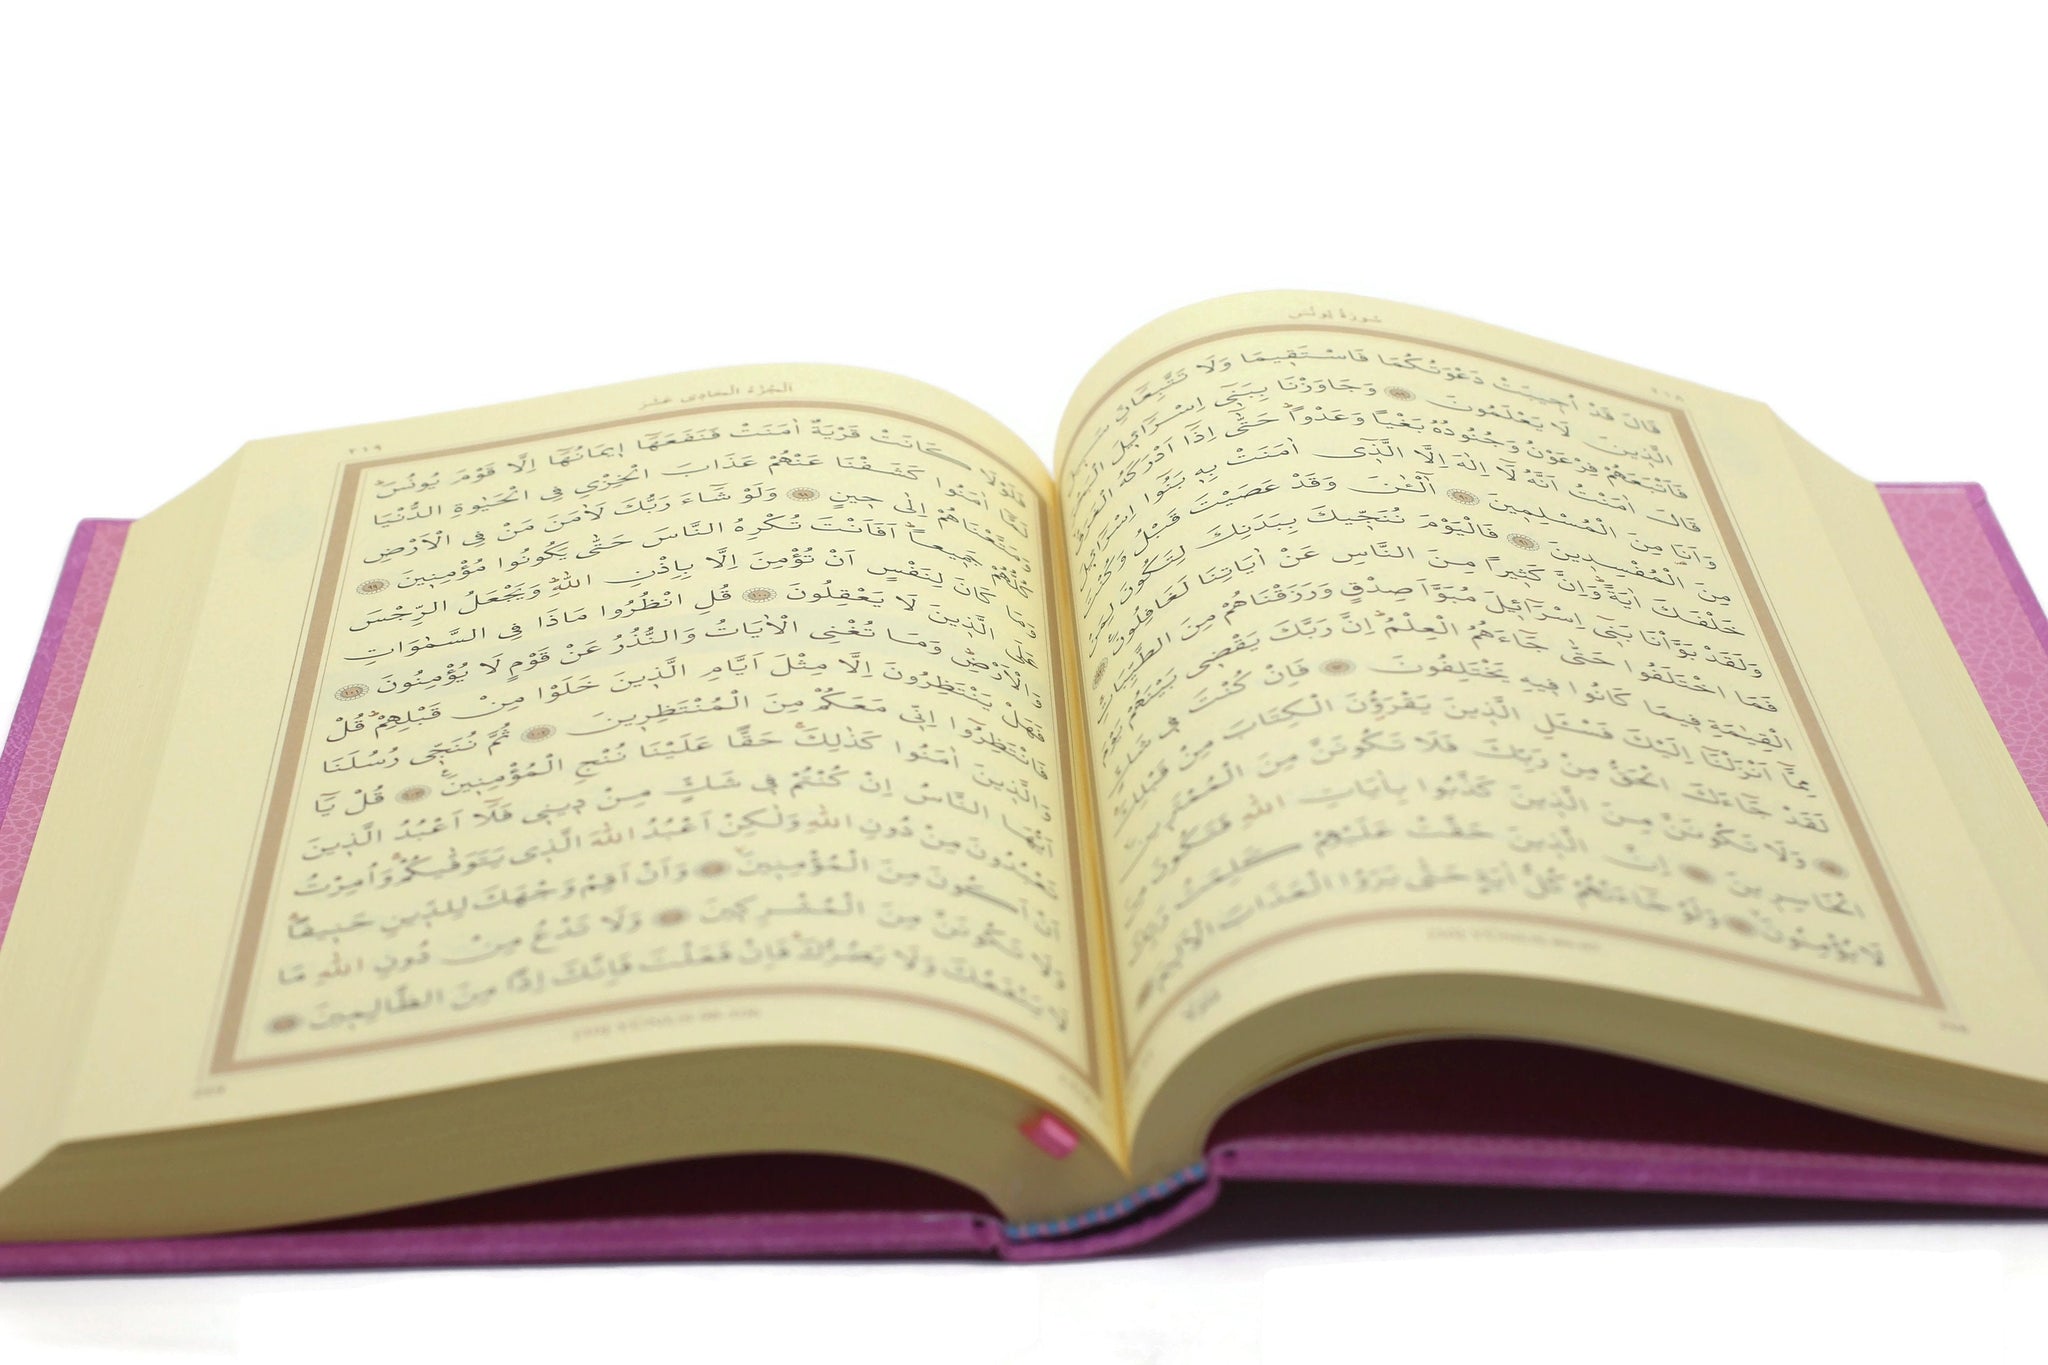 سُورَةُ يُونُسَ
٢١٨
قَالَ قَدْ اُجِيبَتْ دَعْوَتُكُمَا فَاسْتَقِيمَا وَلَا تَتَّبِعَانِّ سَبِيلَ
الَّذِينَ لَا يَعْلَمُونَ وَجَاوَزْنَا بِبَنِي اِسْرَائِلَ الْبَحْرَ
فَاَتْبَعَهُمْ فِرْعَوْنُ وَجُنُودُهُ بَغْيًا وَعَدْوًا حَتّٰى اِذَا اَدْرَكَهُ الْغَرَقُ
قَالَ اٰمَنْتُ اَنَّهُ لَا اِلٰهَ اِلَّا الَّذِي اٰمَنَتْ بِهِ بَنُوا اِسْرَائِلَ
وَاَنَا مِنَ الْمُسْلِمِينَ آٰلْـٰٔنَ وَقَدْ عَصَيْتَ قَبْلُ وَكُنْتَ
مِنَ الْمُفْسِدِينَ فَالْيَوْمَ نُنَجِّيكَ بِبَدَنِكَ لِتَكُونَ لِمَنْ
خَلْفَكَ اٰيَةً وَاِنَّ كَثِيرًا مِنَ النَّاسِ عَنْ اٰيَاتِنَا لَغَافِلُونَ
وَلَقَدْ بَوَّأْنَا بَنِي اِسْرَائِلَ مُبَوَّاَ صِدْقٍ وَرَزَقْنَاهُمْ مِنَ الطَّيِّبَاتِ
فَمَا اخْتَلَفُوا حَتّٰى جَاءَهُمُ الْعِلْمُ اِنَّ رَبَّكَ يَقْضِي بَيْنَهُمْ يَوْمَ
الْقِيٰمَةِ فِيمَا كَانُوا فِيهِ يَخْتَلِفُونَ فَاِنْ كُنْتَ فِي شَكٍّ
مِمَّا اَنْزَلْنَا اِلَيْكَ فَسْـَٔلِ الَّذِينَ يَقْرَؤُنَ الْكِتَابَ مِنْ قَبْلِكَ
لَقَدْ جَاءَكَ الْحَقُّ مِنْ رَبِّكَ فَلَا تَكُونَنَّ مِنَ الْمُمْتَرِينَ
وَلَا تَكُونَنَّ مِنَ الَّذِينَ كَذَّبُوا بِاٰيَاتِ اللّٰهِ فَتَكُونَ مِنَ
الْخَاسِرِينَ اِنَّ الَّذِينَ حَقَّتْ عَلَيْهِمْ كَلِمَتُ رَبِّكَ
لَا يُؤْمِنُونَ وَلَوْ جَاءَتْهُمْ كُلُّ اٰيَةٍ حَتّٰى يَرَوُا الْعَذَابَ الْاَلِيمَ
اَلْجُزْءُ الْحَادِي عَشَرَ
٢١٩
فَلَوْلَا كَانَتْ قَرْيَةٌ اٰمَنَتْ فَنَفَعَهَا اِيمَانُهَا اِلَّا قَوْمَ يُونُسَ
لَمَّا اٰمَنُوا كَشَفْنَا عَنْهُمْ عَذَابَ الْخِزْيِ فِي الْحَيٰوةِ الدُّنْيَا
وَمَتَّعْنَاهُمْ اِلٰى حِينٍ ٩٨ وَلَوْ شَاءَ رَبُّكَ لَاٰمَنَ مَنْ فِي الْاَرْضِ
كُلُّهُمْ جَمِيعًا اَفَاَنْتَ تُكْرِهُ النَّاسَ حَتّٰى يَكُونُوا مُؤْمِنِينَ ٩٩
وَمَا كَانَ لِنَفْسٍ اَنْ تُؤْمِنَ اِلَّا بِاِذْنِ اللّٰهِ وَيَجْعَلُ الرِّجْسَ
عَلَى الَّذِينَ لَا يَعْقِلُونَ ١٠٠ قُلِ انْظُرُوا مَاذَا فِي السَّمٰوَاتِ
وَالْاَرْضِ وَمَا تُغْنِي الْاٰيَاتُ وَالنُّذُرُ عَنْ قَوْمٍ لَا يُؤْمِنُونَ ١٠١
فَهَلْ يَنْتَظِرُونَ اِلَّا مِثْلَ اَيَّامِ الَّذِينَ خَلَوْا مِنْ قَبْلِهِمْ قُلْ
فَانْتَظِرُوا اِنِّي مَعَكُمْ مِنَ الْمُنْتَظِرِينَ ١٠٢ ثُمَّ نُنَجِّي رُسُلَنَا
وَالَّذِينَ اٰمَنُوا كَذٰلِكَ حَقًّا عَلَيْنَا نُنْجِ الْمُؤْمِنِينَ ١٠٣ قُلْ يَا
اَيُّهَا النَّاسُ اِنْ كُنْتُمْ فِي شَكٍّ مِنْ دِينِي فَلَا اَعْبُدُ الَّذِينَ
تَعْبُدُونَ مِنْ دُونِ اللّٰهِ وَلٰكِنْ اَعْبُدُ اللّٰهَ الَّذِي يَتَوَفّٰيكُمْ وَاُمِرْتُ
اَنْ اَكُونَ مِنَ الْمُؤْمِنِينَ وَاَنْ اَقِمْ وَجْهَكَ لِلدِّينِ حَنِيفًا
وَلَا تَكُونَنَّ مِنَ الْمُشْرِكِينَ وَلَا تَدْعُ مِنْ دُونِ اللّٰهِ مَا
لَا يَنْفَعُكَ وَلَا يَضُرُّكَ فَاِنْ فَعَلْتَ فَاِنَّكَ اِذًا مِنَ الظَّالِمِينَ